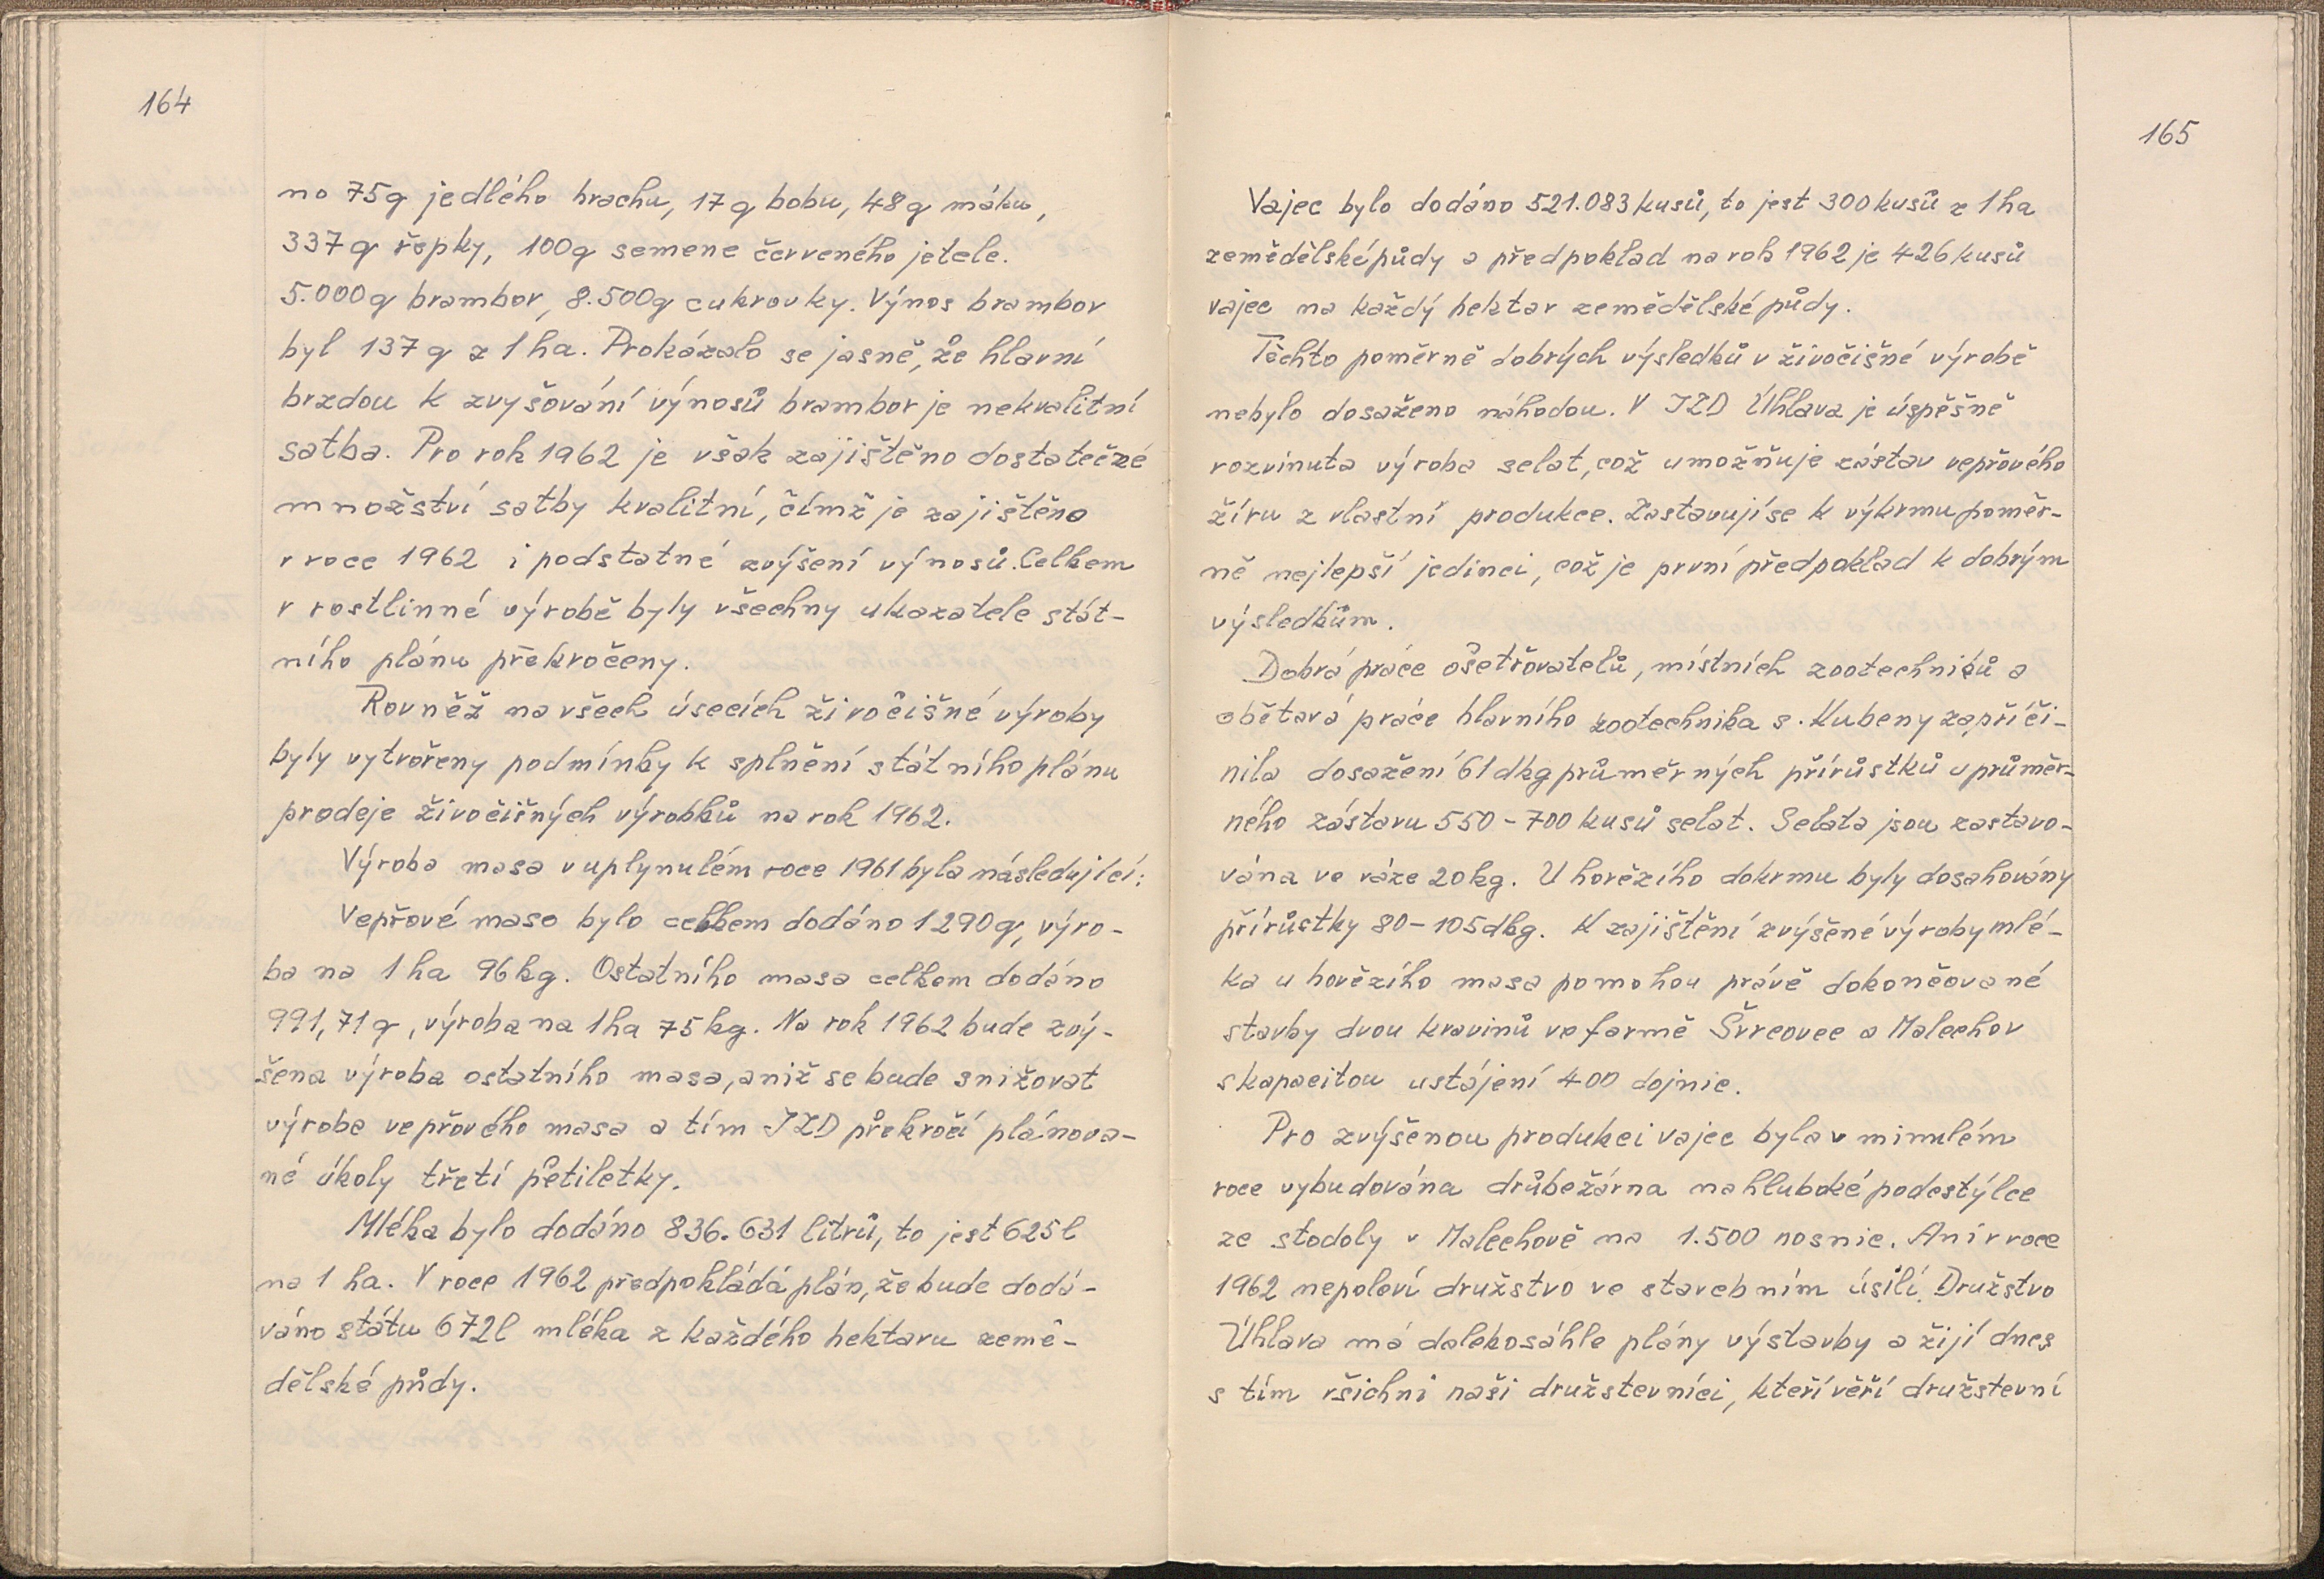 164
no 75q jedlého hrachu, 17q bobu, 48q máku,
337q řepky, 100q semene červeného jetele.
5.000q brambor, 8.500q cukrovky. Výnos brambor
byl 137 q z 1 ha. Prokázalo se jasně, že hlavní
brzdou k zvyšování výnosů brambor je nekvalitní
satba. Pro rok 1962 je však zajištěno dostatečné
množství satby kvalitní, čímž je zajištěno
v roce 1962 i podstatné zvýšení výnosů. Celkem
v rostlinné výrobě byly všechny ukazatele stát-
ního plánu překročeny.
Rovněž na všech úsecích živočišné výroby
byly vytvořeny podmínky k splnění státního plánu
prodeje živočišných výrobků na rok 1962.
Výroba masa v uplynulém roce 1961 byla následující:
Vepřové maso bylo celkem dodáno 1290q, výro-
ba na 1 ha 96 kg. Ostatního masa celkem dodáno
991,71q, výroba na 1ha 75kg. Na rok 1962 bude zvý-
šena výroba ostatního masa, aniž se bude snižovat
výroba vepřového masa a tím JZD překročí plánova-
né úkoly třetí pětiletky.
Mléka bylo dodáno 836.631 litrů, to jest 625l
na 1 ha. V roce 1962 předpokládá plán, že bude dodá-
váno státu 672l mléka z každého hektaru země-
dělské půdy.
165
Vajec bylo dodáno 521.083 kusů, to jest 300 kusů z 1ha
zemědělské půdy a předpoklad na rok 1962 je 426 kusů
vajec na každý hektar zemědělské půdy.
Těchto poměrně dobrých výsledků v živočišné výrobě
nebylo dosaženo náhodou. V JZD Úhlava je úspěšně
rozvinuta výroba selat, což umožňuje zástav vepřového
žíru z vlastní produkce. Zastavují se k výkrmu poměr-
ně nejlepší jedinci, což je první předpoklad k dobrým
výsledkům.
Dobrá práce ošetřovatelů, místních zootechniků a
obětavá práce hlavního zootechnika s. Kubeny zapříči-
nila dosažení 61 dkg průměrných přírůstků u průměr-
ného zástavu 550 - 700 kusů selat. Selata jsou zastavo-
vána ve váze 20kg. U hovězího dokrmu byly dosahovány
přírůstky 80 - 105dkg. K zajištění zvýšené výroby mlé-
ka u hovězího masa pomohou právě dokončované
stavby dvou kravinů ve farmě Švrčovec a Malechov
s kapacitou ustájení 400 dojnic.
Pro zvýšenou produkci vajec byla v minulém
roce vybudována drůbežárna na hluboké podestýlce
ze stodoly v Malechově na 1.500 nosnic. Ani v roce
1962 nepoleví družstvo ve stavebním úsilí. Družstvo
Úhlava má dalekosáhle plány výstavby a žijí dnes
s tím všichni naši družstevníci, kteří věří družstevní